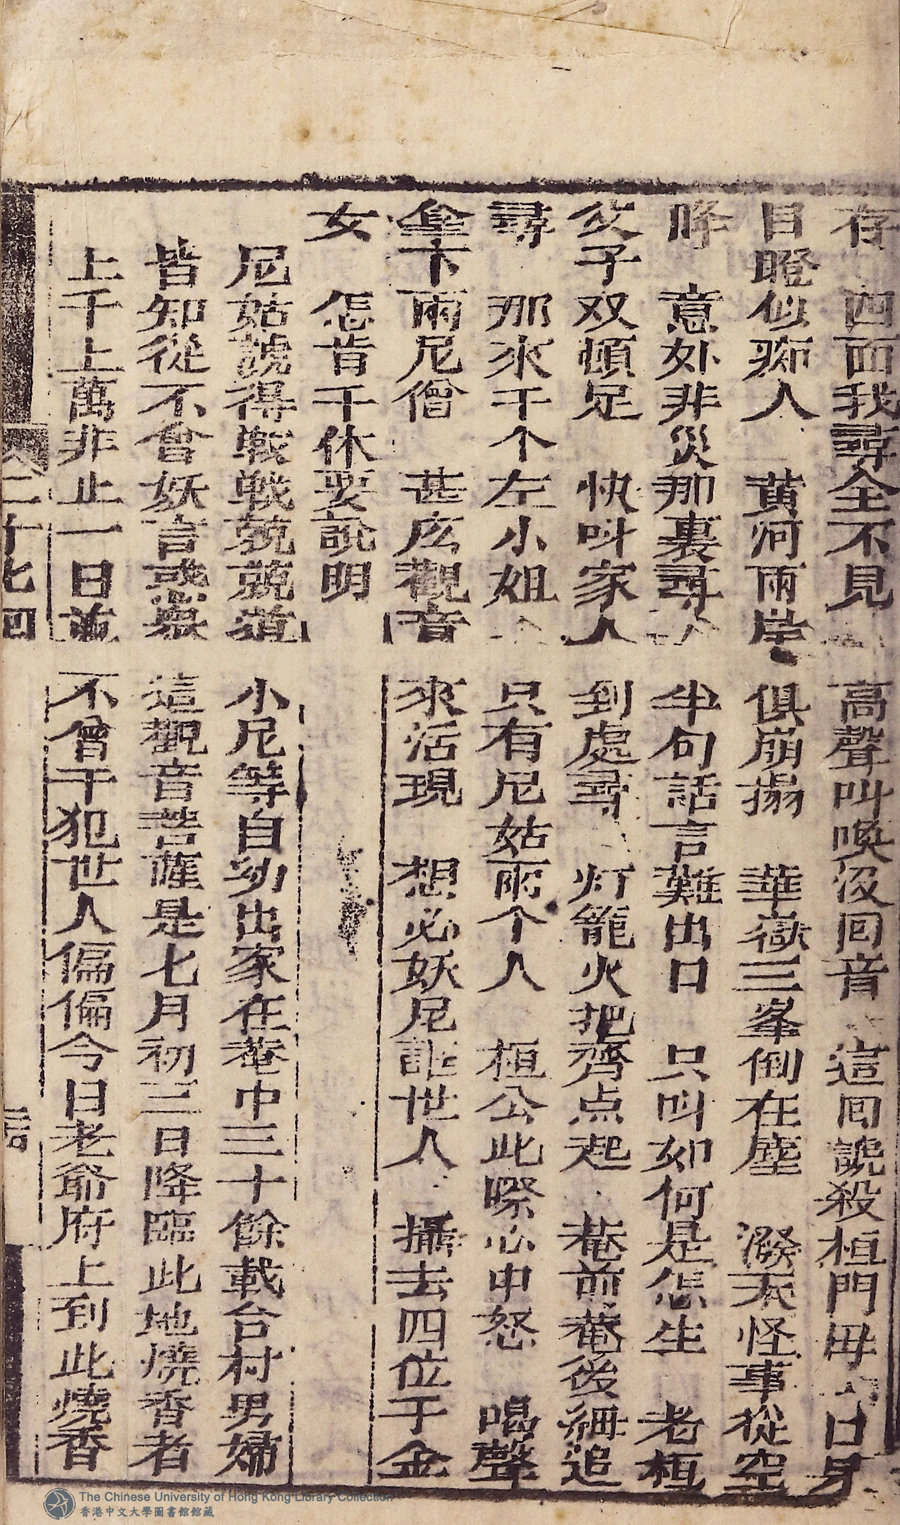 存 四面我尋全不見 高聲叫喚没回音 這回諕殺桓門母 口身
目瞪似痴人 黃河兩岸俱崩搨 華嶽三峯倒在塵 潑天怪事從空
降 意外非災那裏尋 半句話言難出口 只叫如何是怎生 老桓
父子双頓足 快叫家人到處尋 灯籠火把齊点起 菴前菴後細追
尋 那來千个左小姐 只有尼姑兩个人 桓公此際心中怒 喝聲
垒下兩尼僧 甚庅觀音來活現 想必妖尼誆世人 攝去四位千金
女 怎肯干休要説明
尼姑諕得戰戰兢兢道 小尼等自幼出家在菴中三十餘載合村男婦
皆知從不會妖言惑衆 這觀音菩薩是七月初三日降臨此地燒香者
上千上萬非止一日並 不曾干犯世人偏偏今日老爺府上到此燒香
二十七回
The Chinese University of Hong Kong Library Collection
香港中文大學圖書館館藏